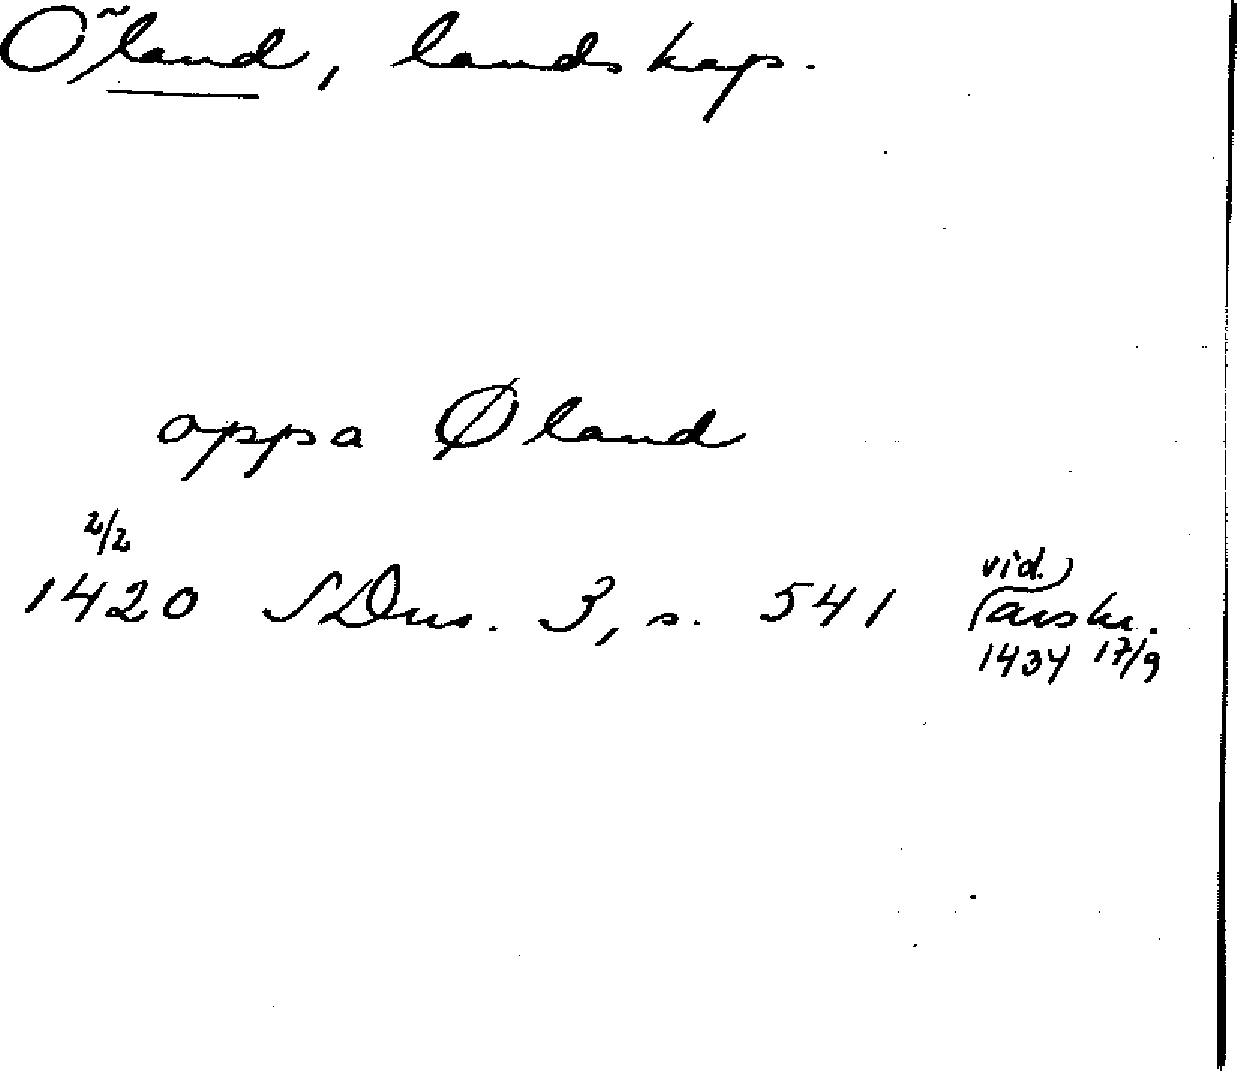 Öland, landskap.
oppa Øland
2/2
1420 SDns. 3, s. 541 vid.
(avskr.
1434 17/9